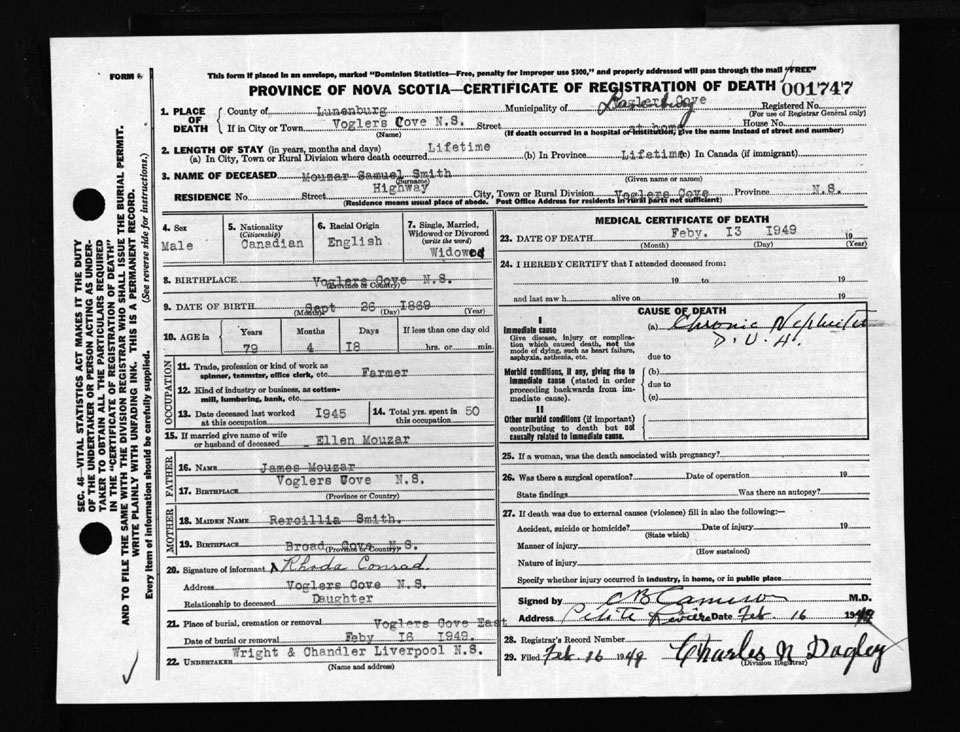 FORM 6
This form if placed in an envelope, marked "Dominion Statistics—Free, penalty for improper use $300," and properly addressed will pass through the mail "FREE"
PROVINCE OF NOVA SCOTIA—CERTIFICATE OF REGISTRATION OF DEATH 001747
1. PLACE OF DEATH
County of Lunenburg Municipality of Voglers Cove Lunenburg Registered No.
(For use of Registrar General only)
If in City or Town Voglers Cove N.S. Street at home House No.
(Name) (If death occurred in a hospital or institution, give the name instead of street and number)
2. LENGTH OF STAY (in years, months and days)
(a) In City, Town or Rural Division where death occurred Lifetime (b) In Province Lifetime (c) In Canada (if immigrant)
3. NAME OF DECEASED Mouzar Samuel Smith
(Surname) (Given name or names)
RESIDENCE No. Street Highway City, Town or Rural Division Voglers Cove Province N.S.
(Residence means usual place of abode. Post Office Address for residents in rural parts not sufficient)
4. Sex Male
5. Nationality (Citizenship) Canadian
6. Racial Origin English
7. Single, Married, Widowed or Divorced (write the word) Widowed
8. BIRTHPLACE Voglers Cove N.S.
(Province or Country)
9. DATE OF BIRTH Sept 26 1869
(Month) (Day) (Year)
10. AGE in Years Months Days If less than one day old
79 4 18 hrs. or min.
OCCUPATION
11. Trade, profession or kind of work as spinner, teamster, office clerk, etc. Farmer
12. Kind of industry or business, as cotton-mill, lumbering, bank, etc.
13. Date deceased last worked at this occupation 1945
14. Total yrs. spent in this occupation 50
15. If married give name of wife or husband of deceased Ellen Mouzar
FATHER
16. NAME James Mouzar
17. BIRTHPLACE Voglers Cove N.S.
(Province or Country)
MOTHER
18. MAIDEN NAME Reroillia Smith.
19. BIRTHPLACE Broad Cove N.S.
(Province or Country)
20. Signature of informant Rhoda Conrad
Address Voglers Cove N.S.
Relationship to deceased Daughter
21. Place of burial, cremation or removal Voglers Cove East
Date of burial or removal Feby 16 1949.
22. UNDERTAKER Wright & Chandler Liverpool N.S.
(Name and address)
MEDICAL CERTIFICATE OF DEATH
23. DATE OF DEATH Feby. 13 1949 19
(Month) (Day) (Year)
24. I HEREBY CERTIFY that I attended deceased from:
19 to 19
and last saw h alive on 19
CAUSE OF DEATH
I
Immediate cause
Give disease, injury or complication which caused death, not the mode of dying, such as heart failure, asphyxia, asthenia, etc.
(a) Chronic Nephritis
due to
Morbid conditions, if any, giving rise to immediate cause (stated in order proceeding backwards from immediate cause).
(b)
due to
(c)
II
Other morbid conditions (if important) contributing to death but not causally related to immediate cause.
25. If a woman, was the death associated with pregnancy?
26. Was there a surgical operation? Date of operation 19
State findings Was there an autopsy?
27. If death was due to external causes (violence) fill in also the following:—
Accident, suicide or homicide? Date of injury 19
(State which)
Manner of injury
(How sustained)
Nature of injury
Specify whether injury occurred in industry, in home, or in public place
Signed by C B Cameron M.D.
Address Petite Riviere Date Feb. 16 1949
28. Registrar's Record Number
29. Filed Feb. 16 1949 Charles N Dagley
(Division Registrar)
SEC. 46—VITAL STATISTICS ACT MAKES IT THE DUTY
OF THE UNDERTAKER OR PERSON ACTING AS UNDER-
TAKER TO OBTAIN ALL THE PARTICULARS REQUIRED
IN THE "CERTIFICATE OF REGISTRATION OF DEATH"
AND TO FILE THE SAME WITH THE DIVISION REGISTRAR WHO SHALL ISSUE THE BURIAL PERMIT.
WRITE PLAINLY WITH UNFADING INK. THIS IS A PERMANENT RECORD.
Every item of information should be carefully supplied. (See reverse side for instructions.)